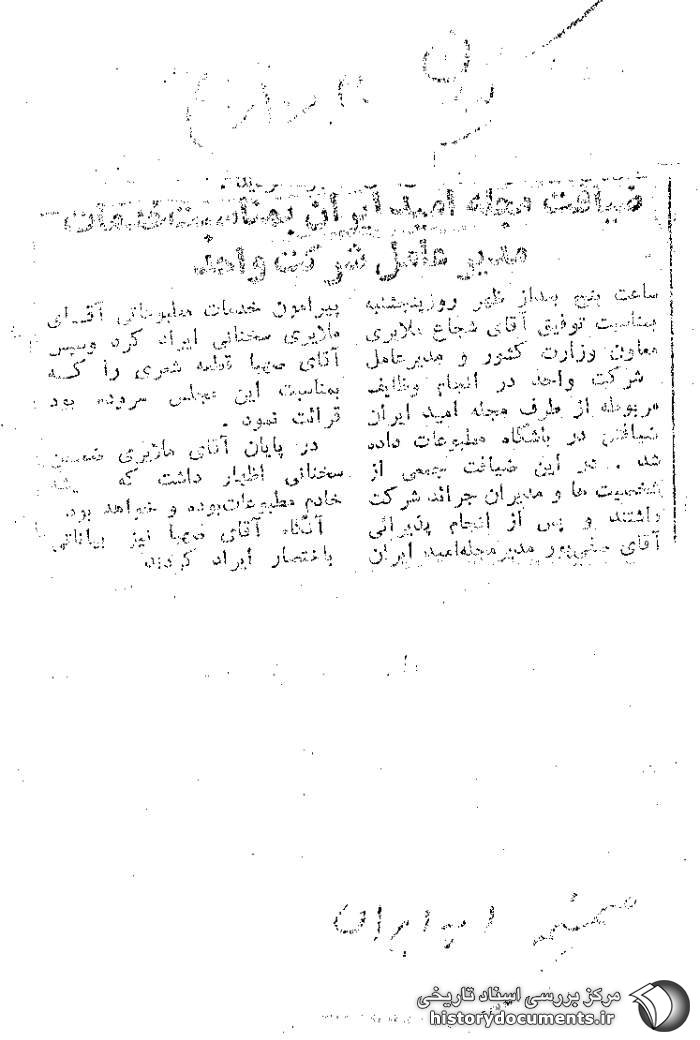 ضیافت مجله امید ایران بمناسبت خدمات
مدیر عامل شرکت واحد
ساعت پنج بعداز ظهر روز پنجشنبه
بمناسبت توفیق آقای شجاع ملایری
معاون وزارت کشور و مدیرعامل
شرکت واحد در انجام وظایف
مربوطه از طرف مجله امید ایران
ضیافتی در باشگاه مطبوعات داده
شد . در این ضیافت جمعی از
شخصیت ها و مدیران جرائد شرکت
داشتند و پس از انجام پذیرائی
آقای صفی‌پور مدیر مجله امید ایران
پیرامون خدمات مطبوعاتی آقای
ملایری سخنانی ایراد کرد و سپس
آقای صهبا قطعه شعری را که
بمناسبت این مجلس سروده بود
قرائت نمود .
در پایان آقای ملایری ضمن
سخنانی اظهار داشت که
خادم مطبوعات بوده و خواهد بود.
آنگاه آقای صهبا نیز بیاناتی
باختصار ایراد کردند
ایران
مرکز بررسی اسناد تاریخی
historydocuments.ir